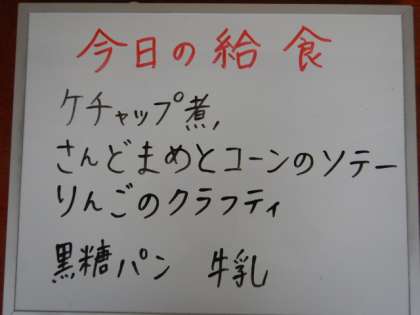 今日の給食
ケチャップ煮,
さんどまめとコーンのソテー
りんごのクラフティ
黒糖パン 牛乳